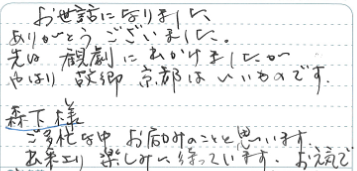 お世話になりました
ありがとうございました。
先は 観劇におかけましたが
やはり 故郷 京都はいいものです.
森下様
ご多忙な中 お悩みのことと思います
お来エリ 楽しみに待っています. お元気で